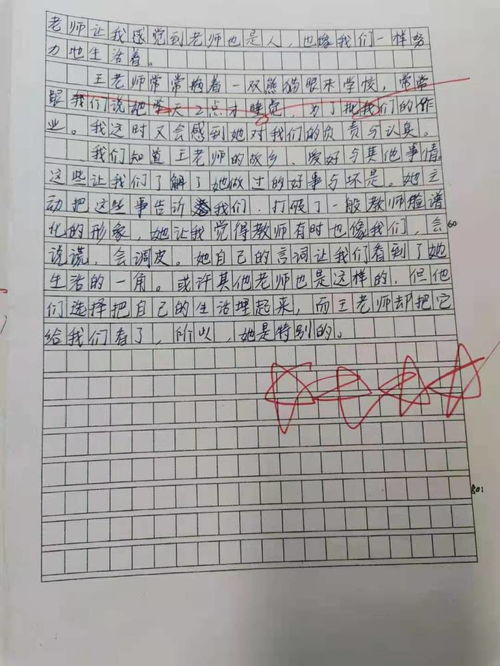 老师让我感觉到老师也是人，也像我们一样努
力地生活着。
王老师常常抱着一双熊猫眼来学校，常常
跟我们说她今天2点才睡觉，为了批我们的作
业。我这时又会感到她对我们的负责与认真。
我们知道王老师的故乡、爱好与其他事情。
这些让我们了解了她做过的好事与坏是。她主
动把这些事告诉我们，打破了一般教师脸谱
化的形象，她让我觉得教师有时也像我们，会
说谎，会调皮。她自己的言词让我们看到了她
生活的一角。或许其他老师也是这样的，但他
们选择把自己的生活埋起来，而王老师却把它
给我们看了，所以，她是特别的。